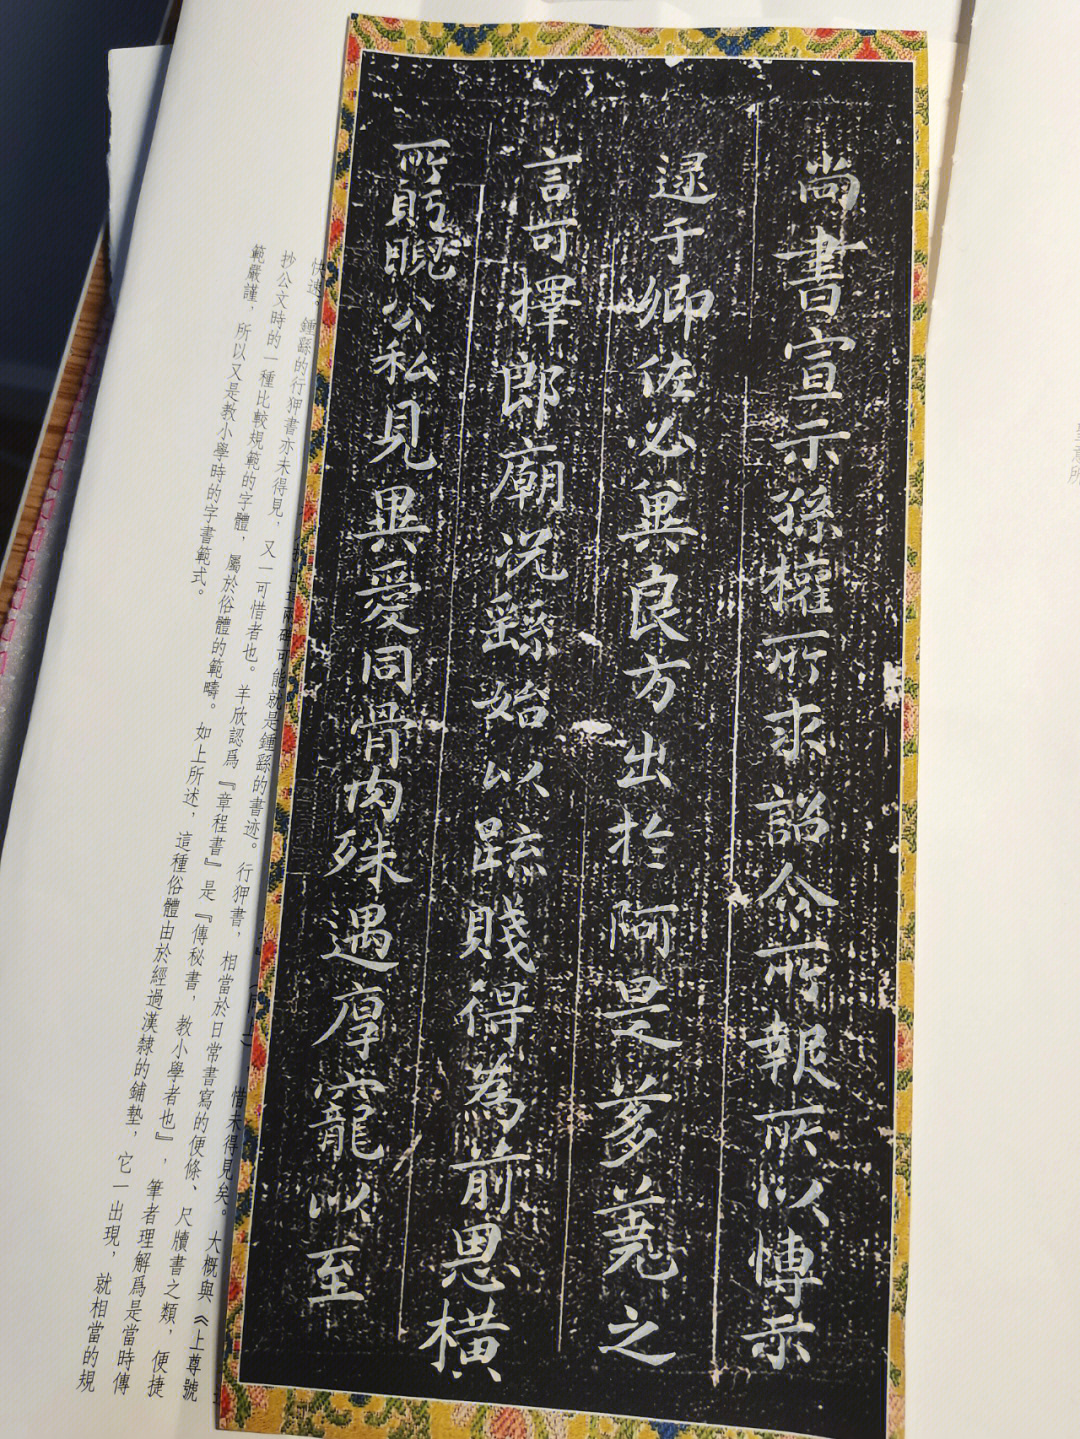 尚書宣示孫權所求詔令所報所以博示
逮于卿佐必冀良方出於阿是芻蕘之
言可擇郎廟況繇始以疏賤得為前恩橫
所眄睨公私見異愛同骨肉殊遇厚寵以至
惜未得見矣。大概與《上尊號
兩碑可能就是鍾繇的書迹。行狎書，相當於日常書寫的便條、尺牘書之類，便捷
快速。鍾繇的行狎書亦未得見，又一可惜者也。羊欣認爲『章程書』是『傳秘書，教小學者也』，筆者理解爲是當時傳
抄公文時的一種比較規範的字體，屬於俗體的範疇。如上所述，這種俗體由於經過漢隸的鋪墊，它一出現，就相當的規
範嚴謹，所以又是教小學時的字書範式。